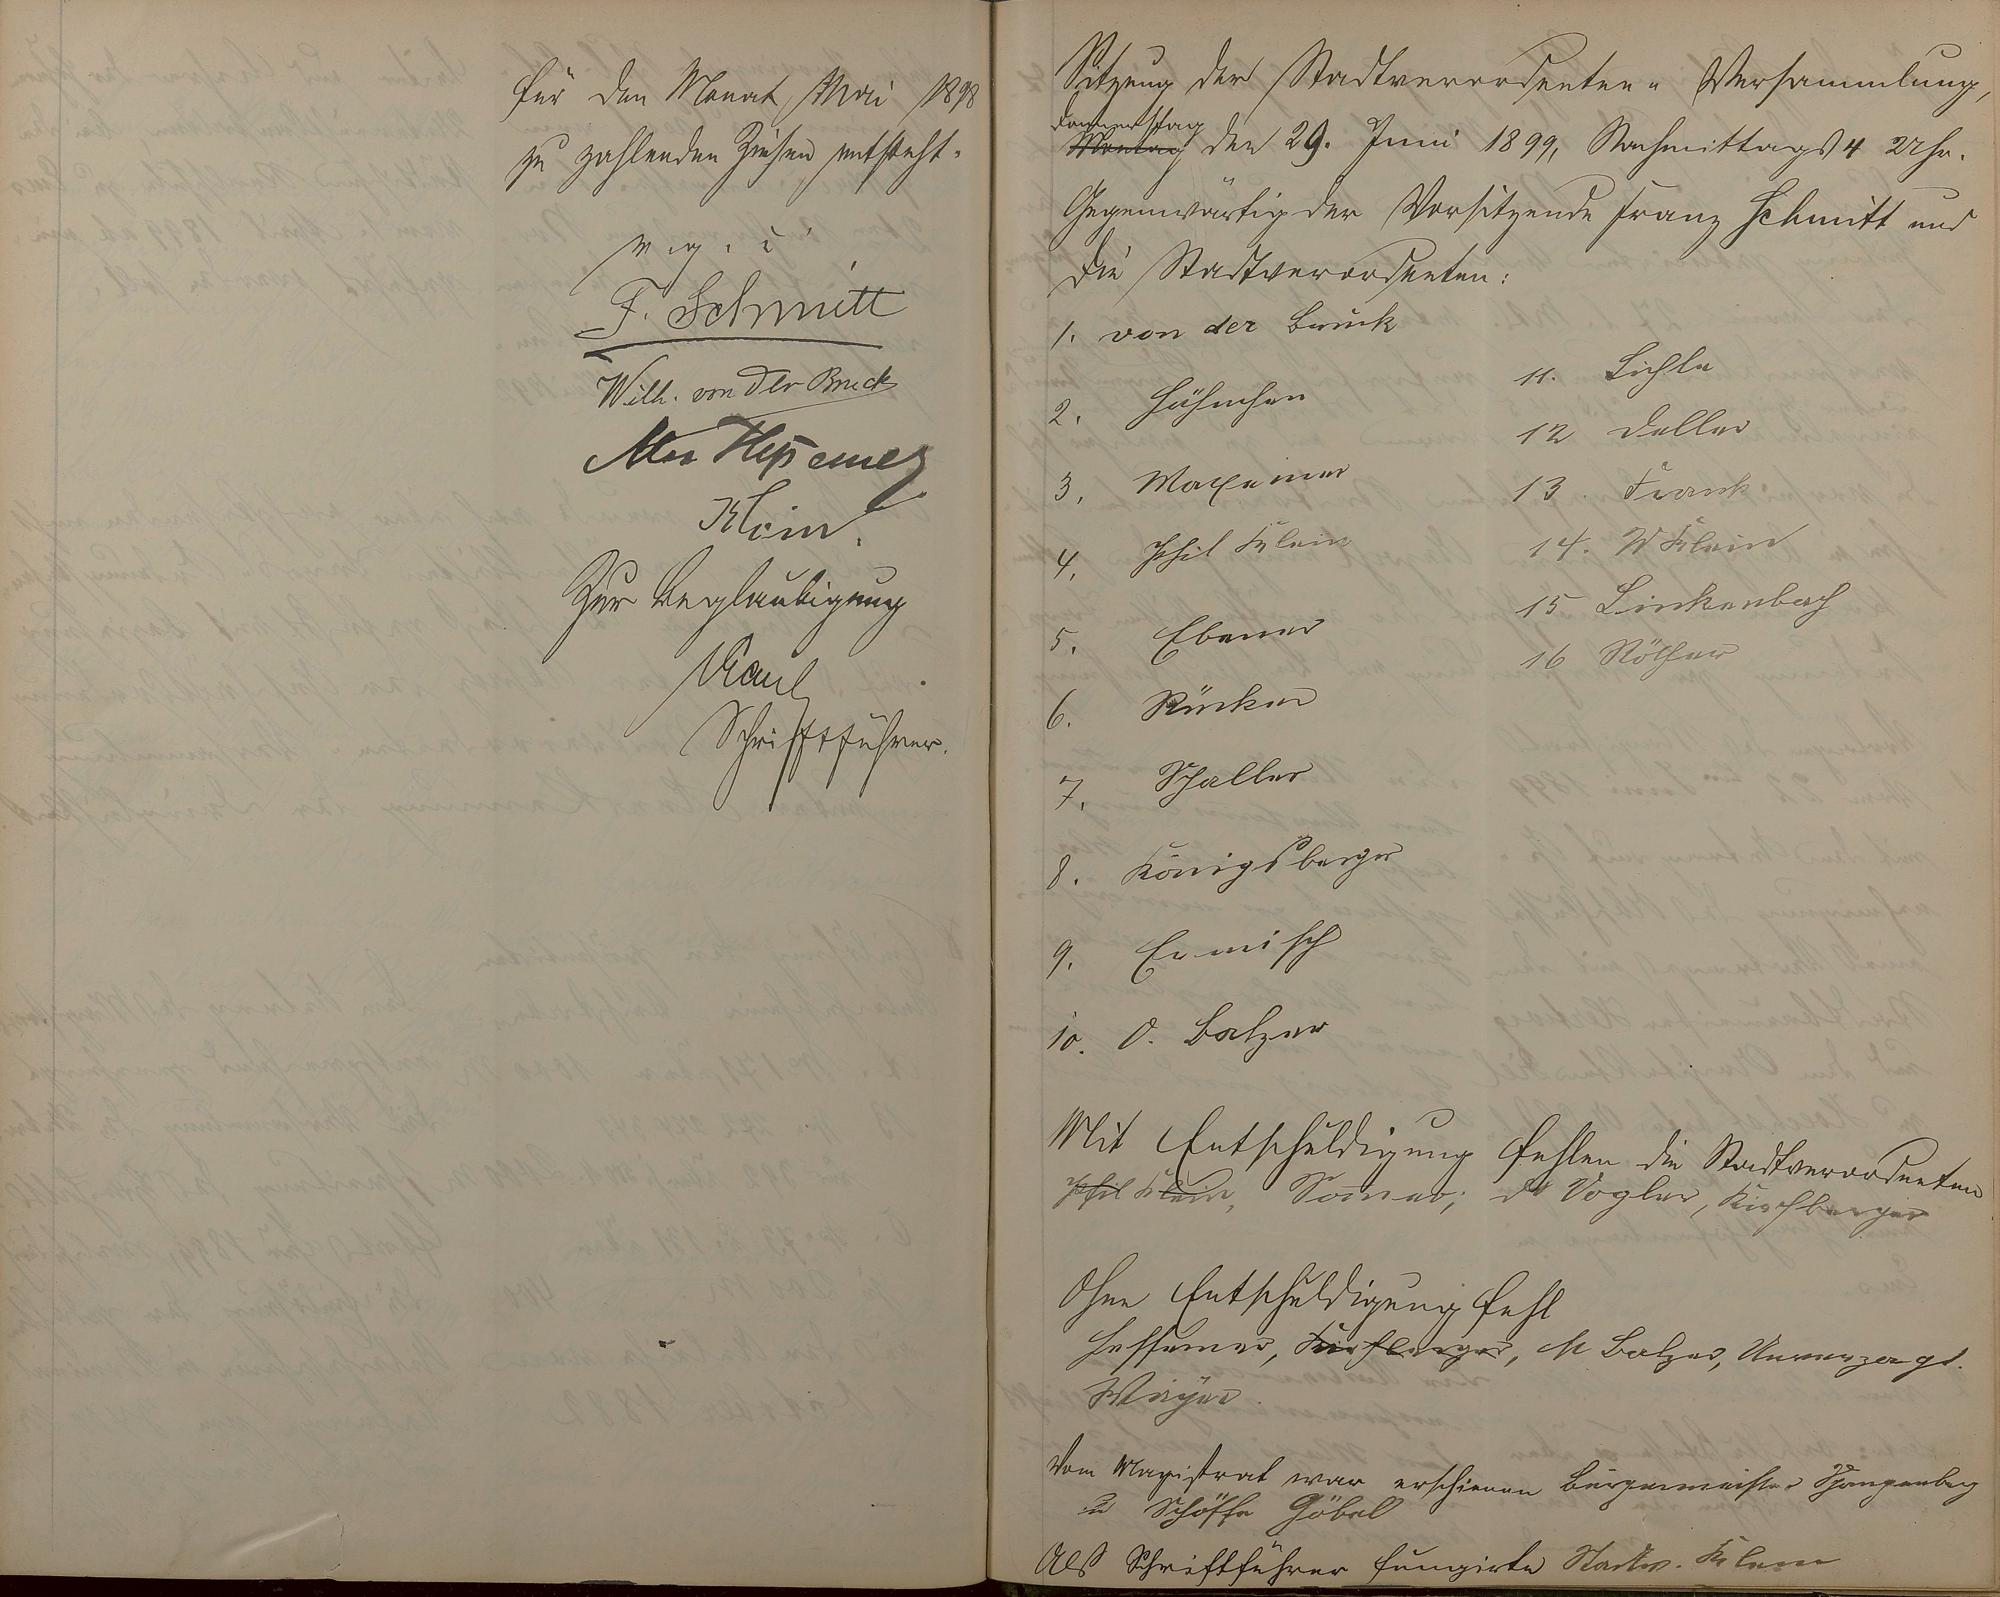 für den Monat Mai 1898
zu zahlenden Zinsen entsteht.
v. g. u.
F. Schmitt
Wilh. von der Bruck
Klein.
Zur Beglaubigung
Schriftführer.
Sitzung der Stadtverordneten-Versammlung,
Donnerstag
Montag den 29. Juni 1899, Nachmittags 4 Uhr.
Gegenwärtig der Vorsitzende Franz Schmitt und
die Stadtverordneten:
1. von der Bruck
2. Hähnchen
3. Maxeiner
4. Phil Klein
5. Ebener
6. Rücker
7. Schaller
8. Königsberger
9. Ermisch
10. O. Balzer
11. Lichle
12 Deller
13. Frank
14. W Klein
15 Linkenbach
16 Röther
Mit Entschuldigung fehlen die Stadtverordneten
Phil Klein, Sommer, Dr Vogler, Kirchberger
Ohne Entschuldigung fehl
Hessemer, Kirchberger, M Balzer, Unverzagt.
Mayer.
Vom Magistrat war erschienen Bürgermeister Spangenberg
u Schöffe Göbel
Als Schriftführer fungirte Stadtv. Klein